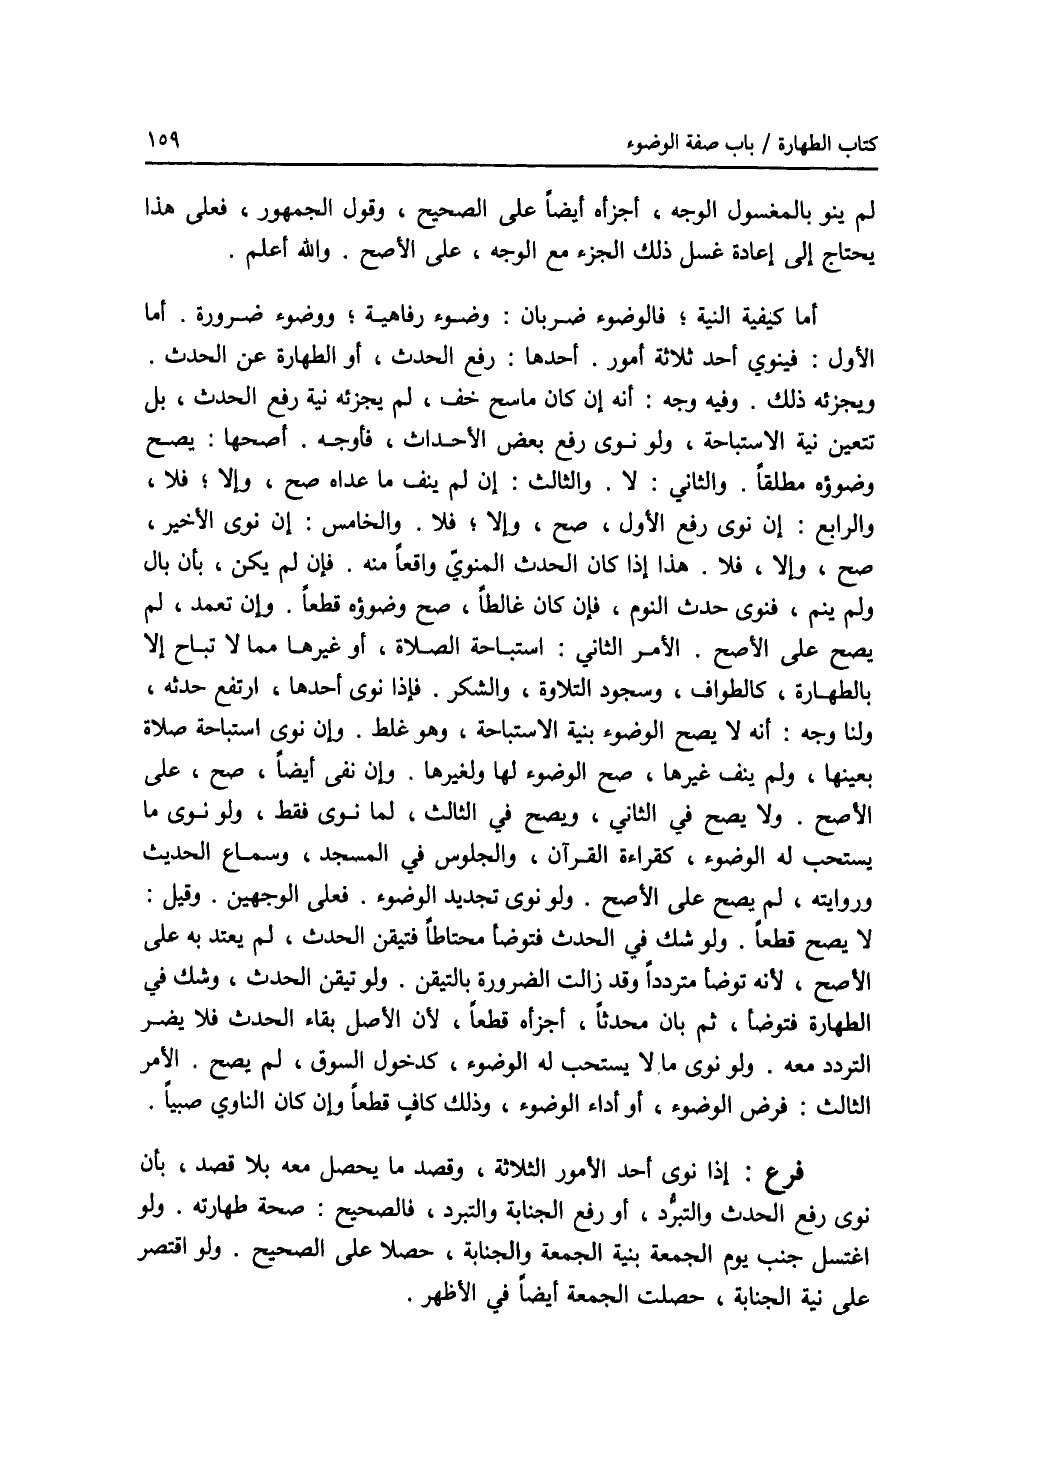 كتاب الطهارة / باب صفة الوضوء ١٥٩
لم ينو بالمغسول الوجه ، أجزأه أيضاً على الصحيح ، وقول الجمهور ، فعلى هذا
يحتاج إلى إعادة غسل ذلك الجزء مع الوجه ، على الأصح . والله أعلم .
أما كيفية النية ؛ فالوضوء ضربان : وضوء رفاهية ؛ ووضوء ضرورة . أما
الأول : فينوي أحد ثلاثة أمور . أحدها : رفع الحدث ، أو الطهارة عن الحدث .
ويجزئه ذلك . وفيه وجه : أنه إن كان ماسح خف ، لم يجزئه نية رفع الحدث ، بل
تتعين نية الاستباحة ، ولو نوى رفع بعض الأحداث ، فأوجه . أصحها : يصح
وضوؤه مطلقاً . والثاني : لا . والثالث : إن لم ينف ما عداه صح ، وإلا ؛ فلا ،
والرابع : إن نوى رفع الأول ، صح ، وإلا ؛ فلا . والخامس : إن نوى الأخير ،
صح ، وإلا ، فلا . هذا إذا كان الحدث المنويّ واقعاً منه . فإن لم يكن ، بأن بال
ولم ينم ، فنوى حدث النوم ، فإن كان غالطاً ، صح وضوؤه قطعاً . وإن تعمد ، لم
يصح على الأصح . الأمر الثاني : استباحة الصلاة ، أو غيرها مما لا تباح إلا
بالطهارة ، كالطواف ، وسجود التلاوة ، والشكر . فإذا نوى أحدها ، ارتفع حدثه ،
ولنا وجه : أنه لا يصح الوضوء بنية الاستباحة ، وهو غلط . وإن نوى استباحة صلاة
بعينها ، ولم ينف غيرها ، صح الوضوء لها ولغيرها . وإن نفى أيضاً ، صح ، على
الأصح . ولا يصح في الثاني ، ويصح في الثالث ، لما نوى فقط ، ولو نوى ما
يستحب له الوضوء ، كقراءة القرآن ، والجلوس في المسجد ، وسماع الحديث
وروايته ، لم يصح على الأصح . ولو نوى تجديد الوضوء . فعلى الوجهين . وقيل :
لا يصح قطعاً . ولو شك في الحدث فتوضأ محتاطاً فتيقن الحدث ، لم يعتد به على
الأصح ، لأنه توضأ متردداً وقد زالت الضرورة بالتيقن . ولو تيقن الحدث ، وشك في
الطهارة فتوضأ ، ثم بان محدثاً ، أجزأه قطعاً ، لأن الأصل بقاء الحدث فلا يضر
التردد معه . ولو نوى ما لا يستحب له الوضوء ، كدخول السوق ، لم يصح . الأمر
الثالث : فرض الوضوء ، أو أداء الوضوء ، وذلك كافٍ قطعاً وإن كان الناوي صبياً .
فرع : إذا نوى أحد الأمور الثلاثة ، وقصد ما يحصل معه بلا قصد ، بأن
نوى رفع الحدث والتبرُّد ، أو رفع الجنابة والتبرد ، فالصحيح : صحة طهارته . ولو
اغتسل جنب يوم الجمعة بنية الجمعة والجنابة ، حصلا على الصحيح . ولو اقتصر
على نية الجنابة ، حصلت الجمعة أيضاً في الأظهر .